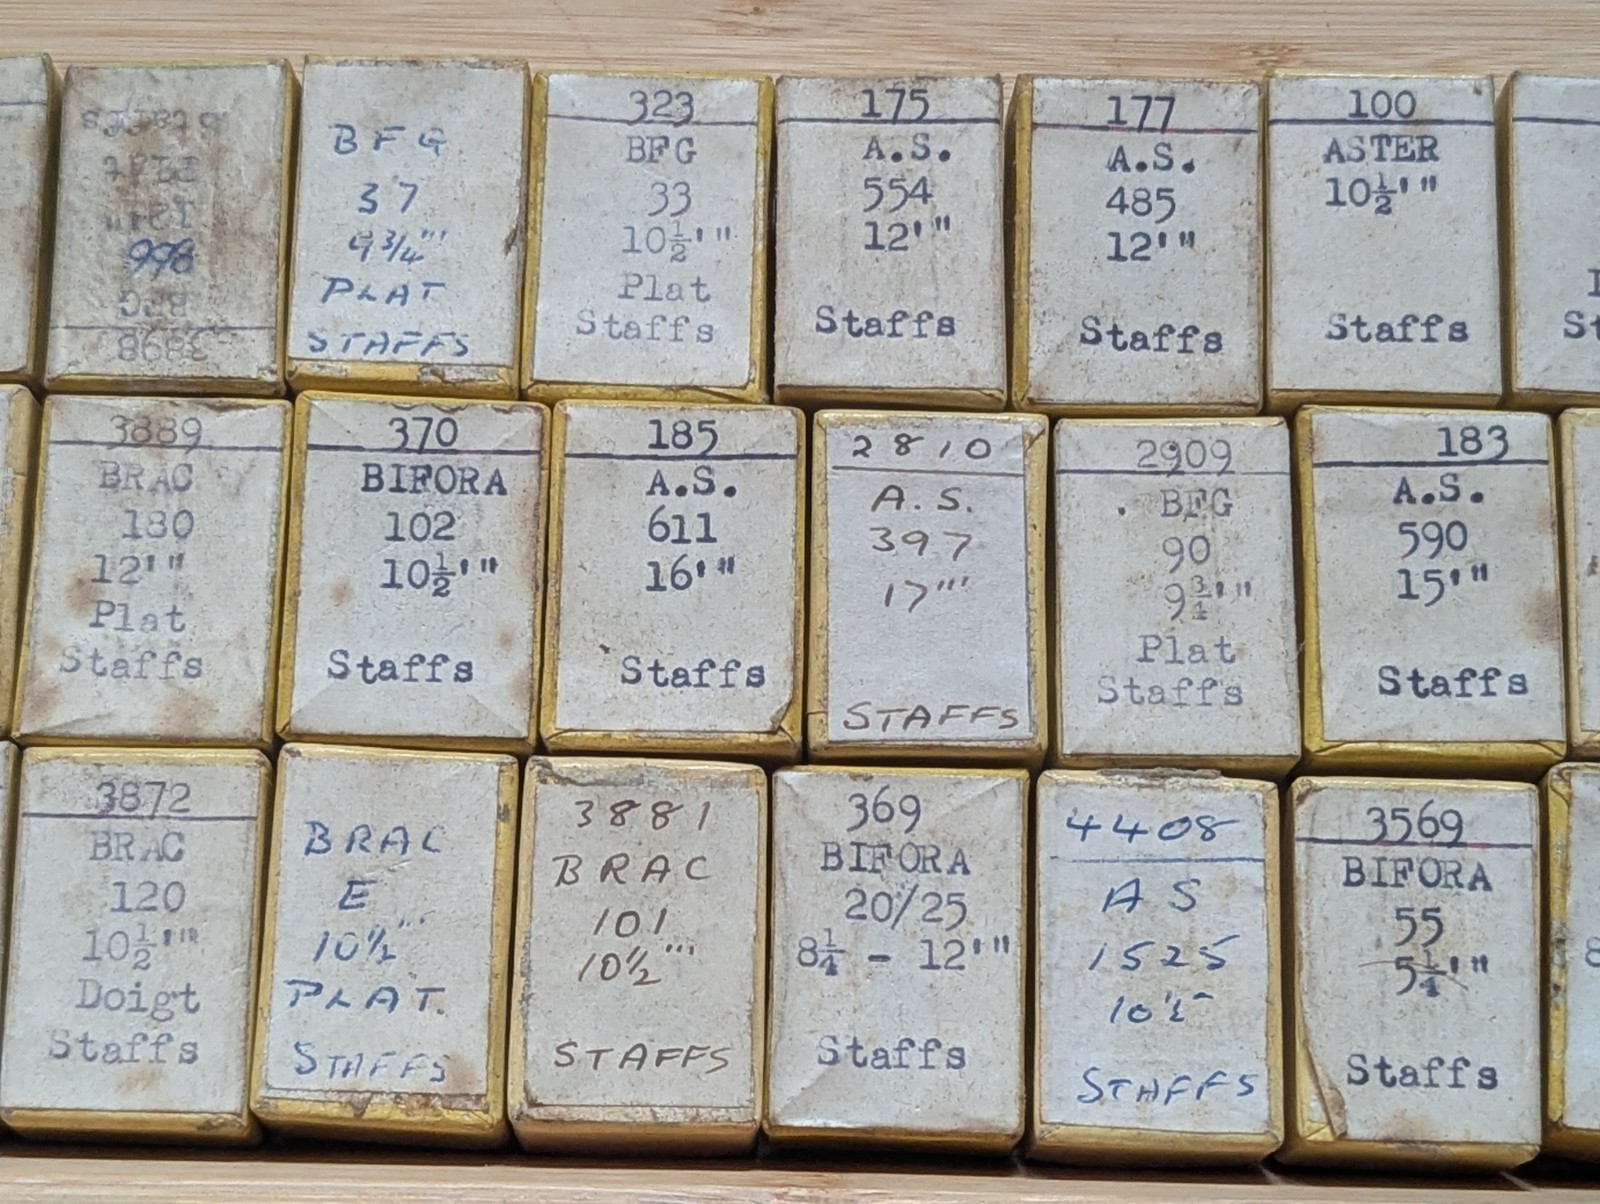 998
BFG
37
9 3/4'''
PLAT
STAFFS
323
BFG
33
10½'"
Plat
Staffs
175
A.S.
554
12'"
Staffs
177
A.S.
485
12'"
Staffs
100
ASTER
10½'"
Staffs
3889
BRAC
180
12'"
Plat
Staffs
370
BIFORA
102
10½'"
Staffs
185
A.S.
611
16'"
Staffs
2810
A.S.
397
17'''
STAFFS
2909
BFG
90
9¾'"
Plat
Staffs
183
A.S.
590
15'"
Staffs
3872
BRAC
120
10½'"
Doigt
Staffs
BRAC
E
10½'''
PLAT.
STAFFS
3881
BRAC
101
10½'''
STAFFS
369
BIFORA
20/25
8¼ - 12'"
Staffs
4408
AS
1525
10½
STAFFS
3569
BIFORA
55
5¼'"
Staffs